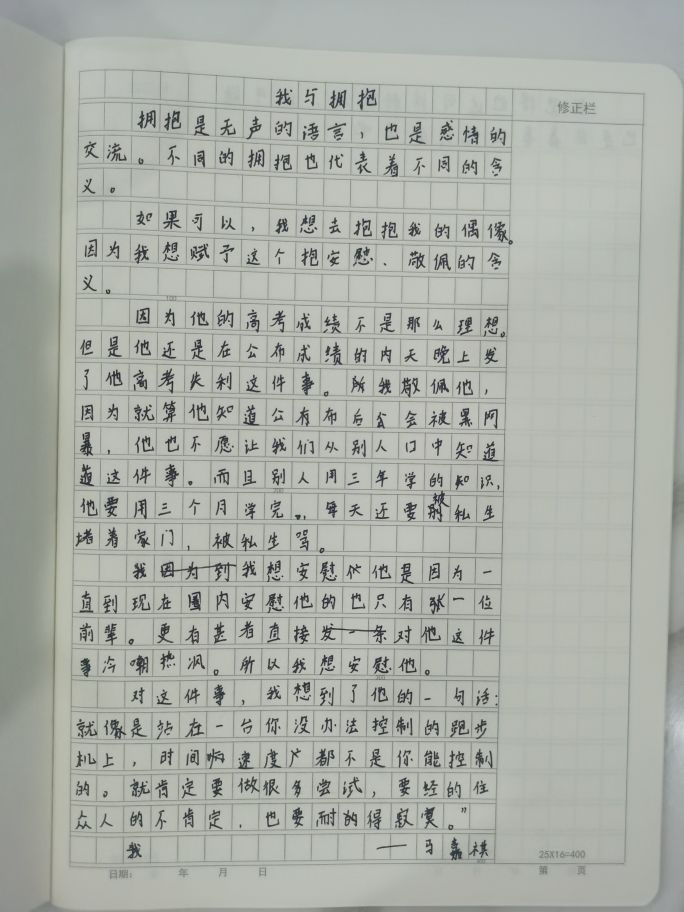 我与拥抱
修正栏
拥抱是无声的语言，也是感情的
交流。不同的拥抱也代表着不同的含
义。
如果可以，我想去抱抱我的偶像。
因为我想赋予这个抱安慰、敬佩的含
义。
100
因为他的高考成绩不是那么理想。
但是他还是在公布成绩的内天晚上发
了他高考失利这件事。所我敬佩他，
因为就算他知道公布后会被黑阿
暴，他也不愿让我们从别人口中知道
道这件事。而且别人用三年学的知识，
200
他要用三个月学完。，每天还要被私生
堵着家门，被私生骂。
我我想安慰他是因为一
直到现在国内安慰他的也只有张一位
前辈。更有甚者直接对他这件
事冷嘲热讽。所以我想安慰他。
300
对这件事，我想到了他的一句话：
就像是站在一台你没办法控制的跑步
机上，时间速度都不是你能控制
的。就肯定要做很多尝试，要经的住
众人的不肯定，也要耐的得寂寞。”
我 ——马嘉祺
25X16=400
日期： 年 月 日 第 页